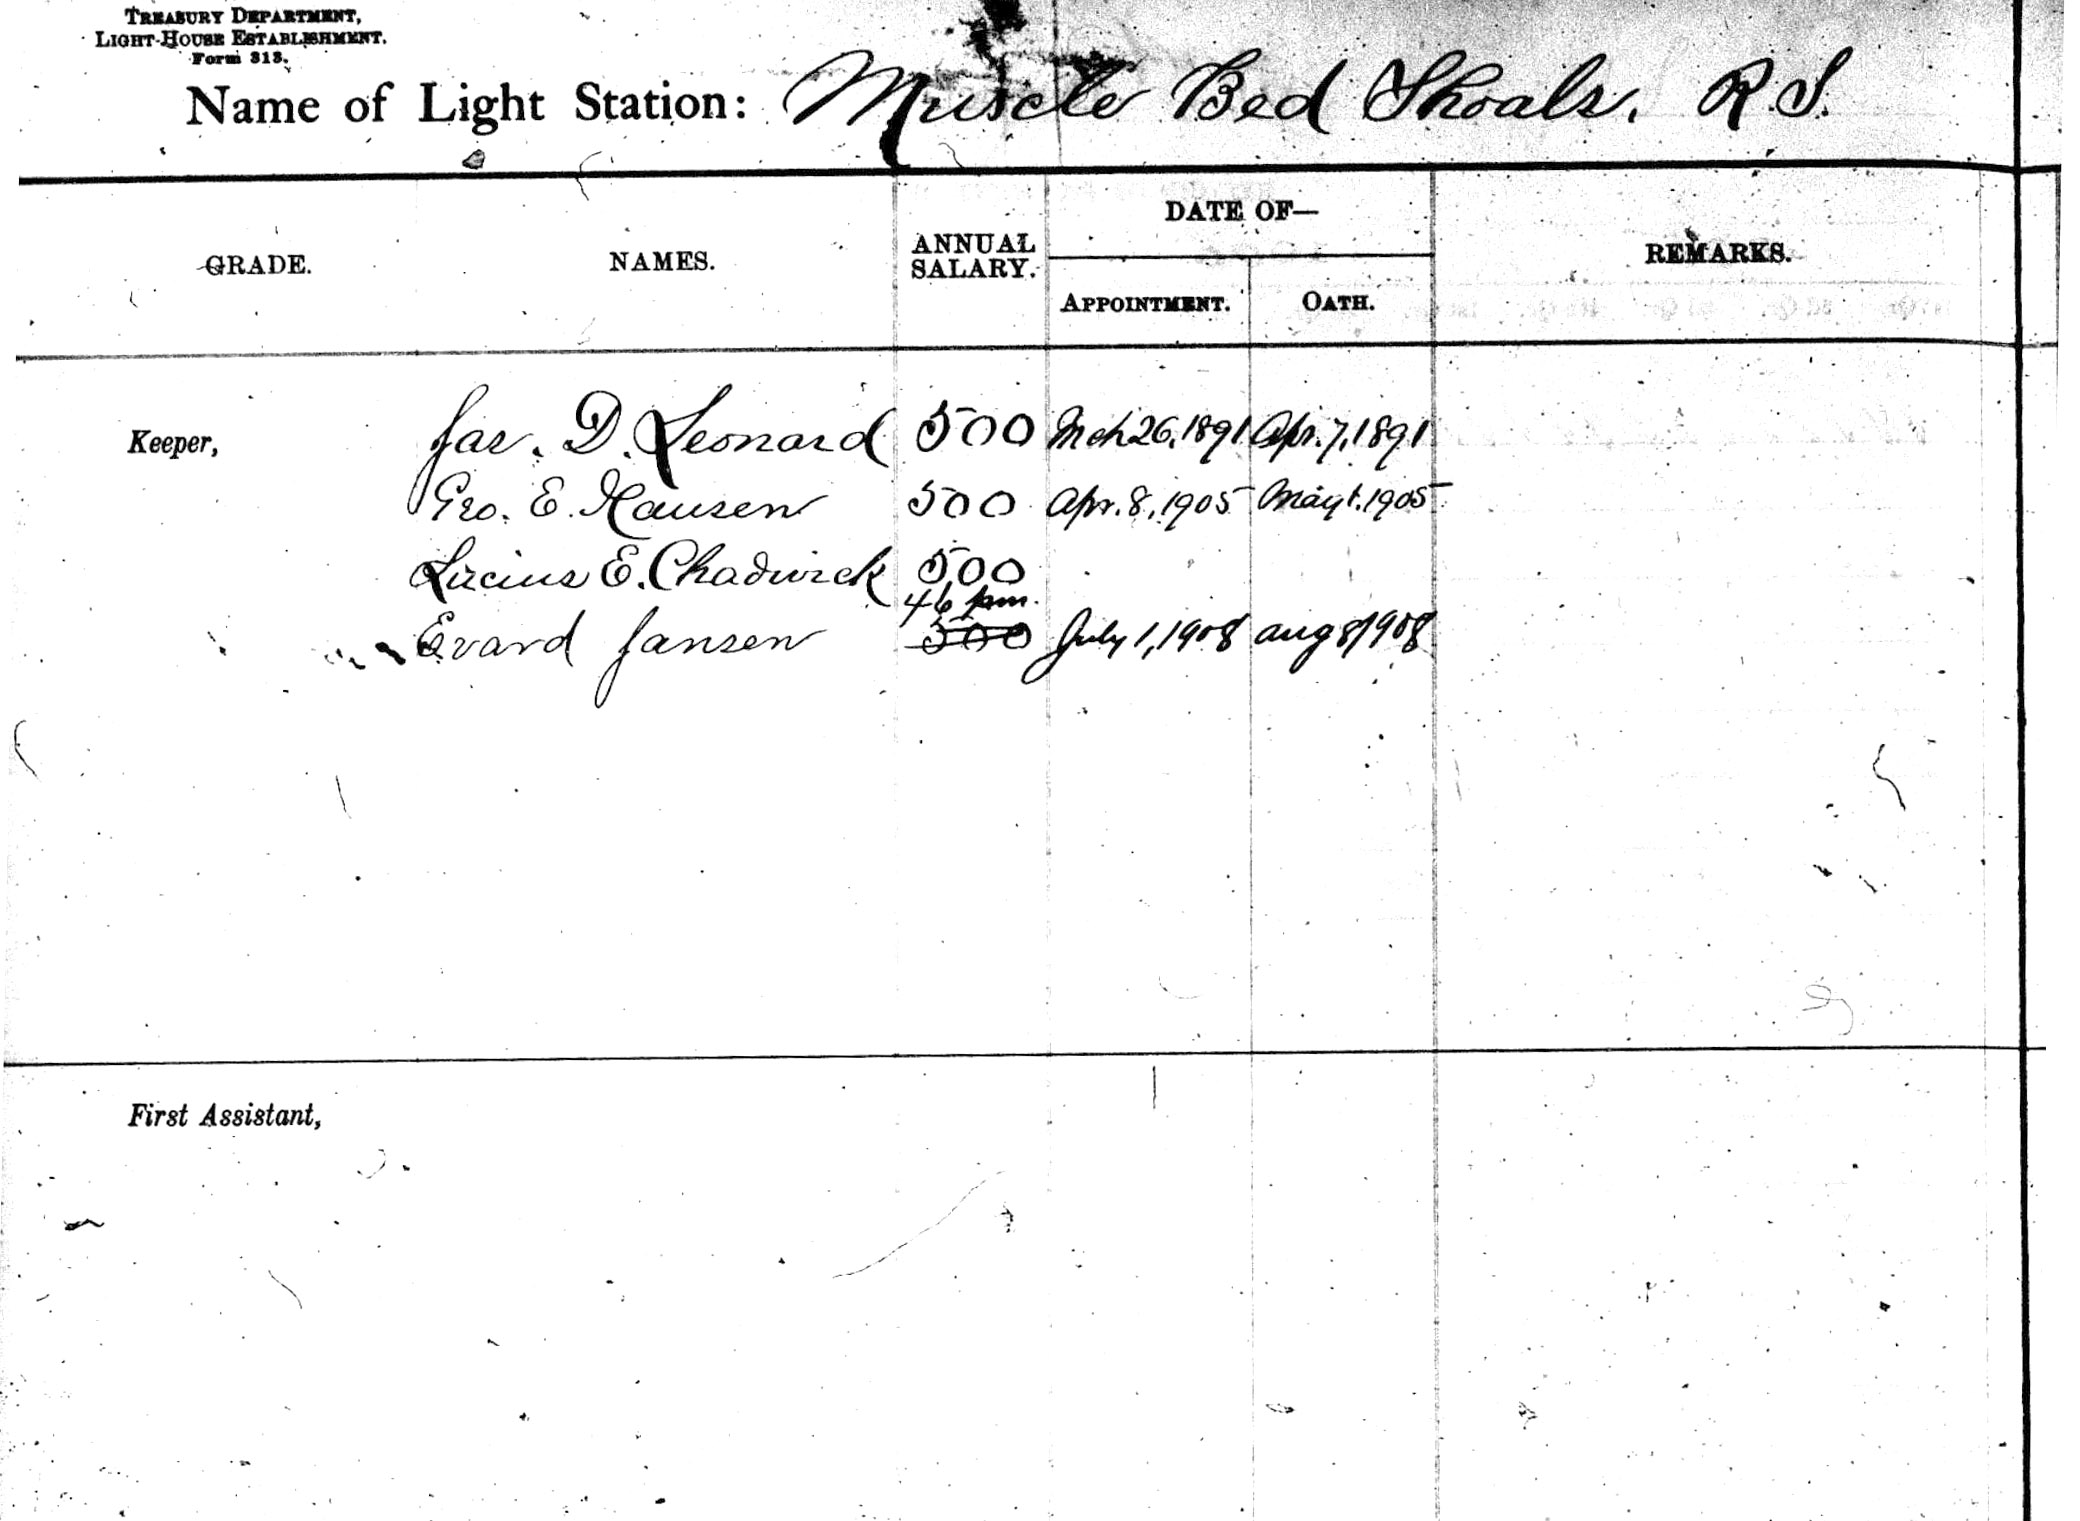 TREASURY DEPARTMENT,
LIGHT-HOUSE ESTABLISHMENT.
Form 313.
Name of Light Station: Muscle Bed Shoals. R. I.
GRADE.
NAMES.
ANNUAL SALARY.
DATE OF—
APPOINTMENT.
OATH.
REMARKS.
Keeper,
Jas. D. Leonard 500 Mch 26, 1891 Apr. 7, 1891
Geo. E. Hansen 500 Apr. 8, 1905 May 1, 1905
Lucius E. Chadwick 500
46 pm.
Evard Jansen 500 July 1, 1908 Aug 8/1908
First Assistant,